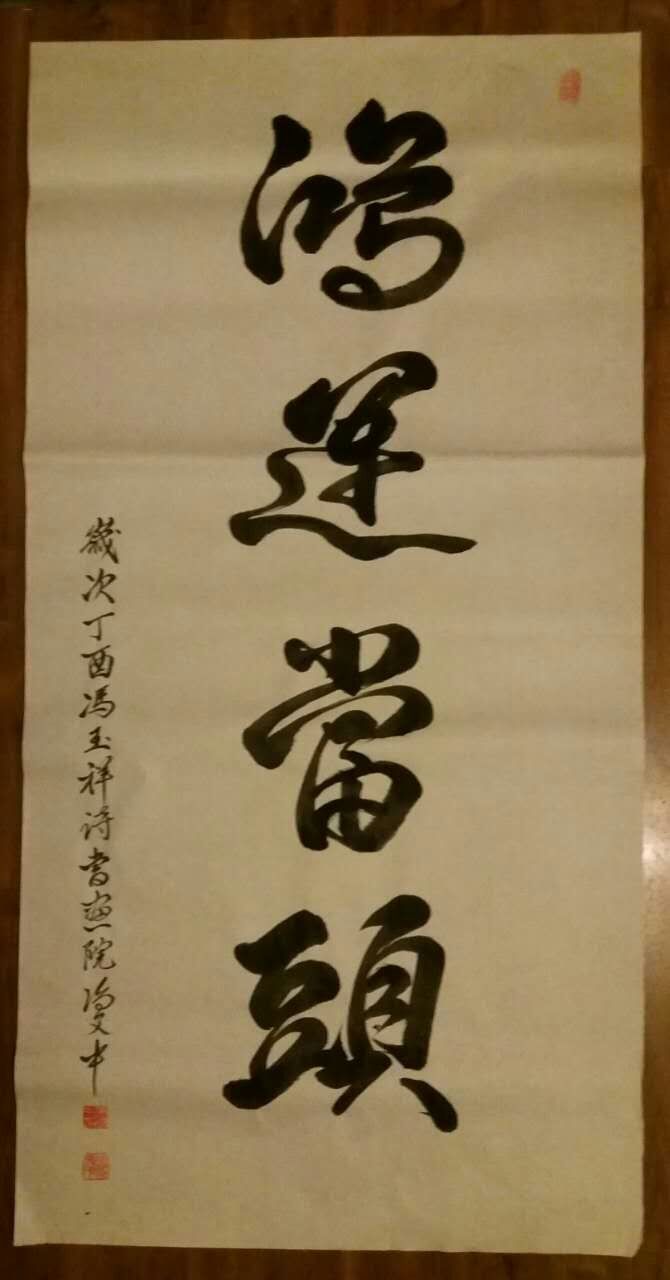 鴻運當頭
歲次丁酉馮玉祥詩書畫院馮文中